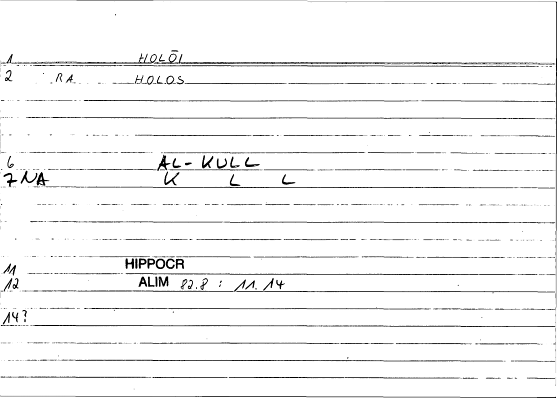 1 HOLŌI
2 RA HOLOS
6 AL-KULL
7 NA K L L
11 HIPPOCR
12 ALIM 82.8 : 11.14
14?